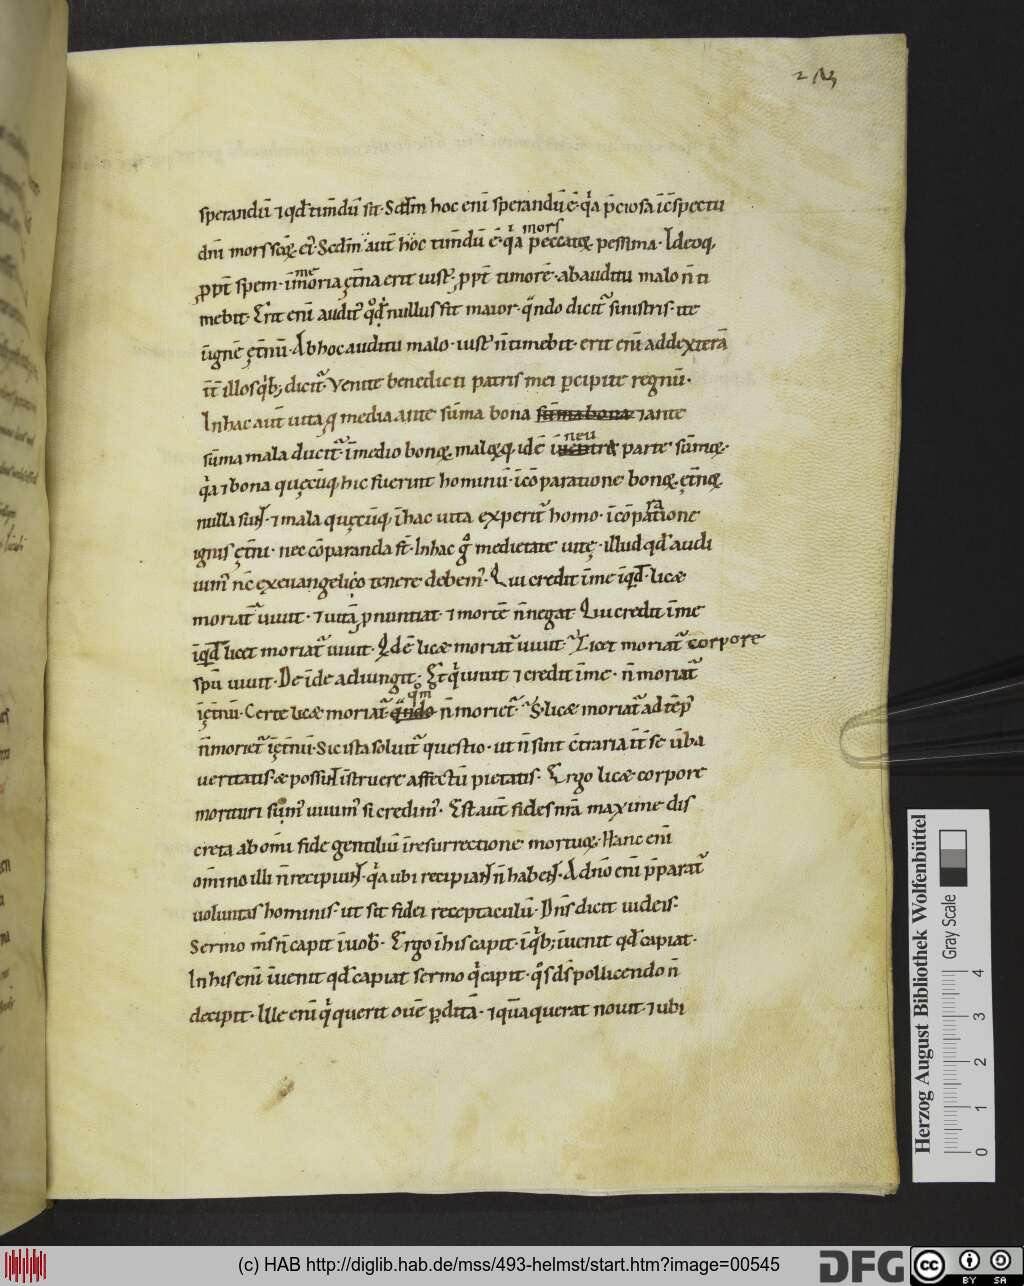 sperandū ⁊ qđ timdū sit. Scđm hoc enī sperandū ē. qͥa p̄ciosa ī c̄spectu
dn̄i mors sc̄oꝝ eiꝰ. Scđm aut̄ hoc timdū ē. qͥa mors peccatoꝝ pessima. Ideoq,
ppt̄ spem. ī memoria ęt̄na erit iustꝰ. ppt̄ timorē. ab auditu malo n̄ ti
mebit. Erit enī auditꝰ nullus sit maior. qn̄do dicit᷑ sinistris. ite
ī ignē ęt̄nū. Ab hoc auditu malo. iustꝰ n̄ timebit. erit enī ad dexterā
īt̄ illos qͥb; dicit᷑. Venite benedicti patris mei ꝑcipite regnū.
In hac aut̄ uita, q media ante sūma bona sūma bona ⁊ ante
sūma mala ducit᷑. ī medio bonoꝝ maloꝝq, idē ī neutra parte sūmoꝝ.
qͥa ⁊ bona quęcūq, hic fuerint hominū. ī cōparatione bonoꝝ ęt̄noꝝ
nulla sunt. ⁊ mala quęcūq, ī hac uita experit᷑ homo. ī cōparatione
ignis ęt̄ni. nec cōparanda st̄. In hac gͦ medietate uitę. illud qđ audi
uimꝰ nc̄ ex euangelico tenere debemꝰ. Qui credit ī me īqđ. licæ
moriat᷑ uiuit. ⁊ uitā pnuntiat. ⁊ mortē n̄ negat. Qui credit ī me
īqđ licet moriat᷑ uiuit. Qđ ē licæ moriat᷑ uiuit. Licet moriat᷑ corpore
spū uiuit. De īde adiungit. Et qͥ uiuit ⁊ credit ī me. n̄ moriat᷑
ī ęt̄nū. Certe licæ moriat᷑ qm̄ n̄ moriet᷑. S; licæ moriat᷑ ad tēpꝰ
n̄ moriet᷑ ī ęt̄nū. Sic ista soluit᷑ questio. ut n̄ sint c̄traria īt̄ se ūba
ueritatis. æ possint īstruere affectū pietatis. Ergo licæ corpore
morituri simꝰ uiuimꝰ si credimꝰ. Est aut̄ fides nr̄a maxime dis
creta ab om̄i fide gentiliū ī resurrectione mortuoꝝ. Hanc enī
om̄ino illi n̄ recipiunt. qͥa ubi recipiant n̄ habent. A dn̄o enī p̄parat᷑
uoluntas hominis. ut sit fidei receptaculū. Dn̄s dicit iudeis.
Sermo m̄s n̄ capit ī uob. Ergo ī his capit. ī qͥb; īuenit qđ capiat.
In his enī īuenit qđ capiat sermo qͥ capit. qͦs dꝰ pollicendo n̄
decipit. Ille enī qͥ querit ouē ꝑditā. ⁊ quā querat nouit. ⁊ ubi
Herzog August Bibliothek Wolfenbüttel
Gray Scale
0 1 2 3 4
(c) HAB http://diglib.hab.de/mss/493-helmst/start.htm?image=00545
DFG
cc BY SA